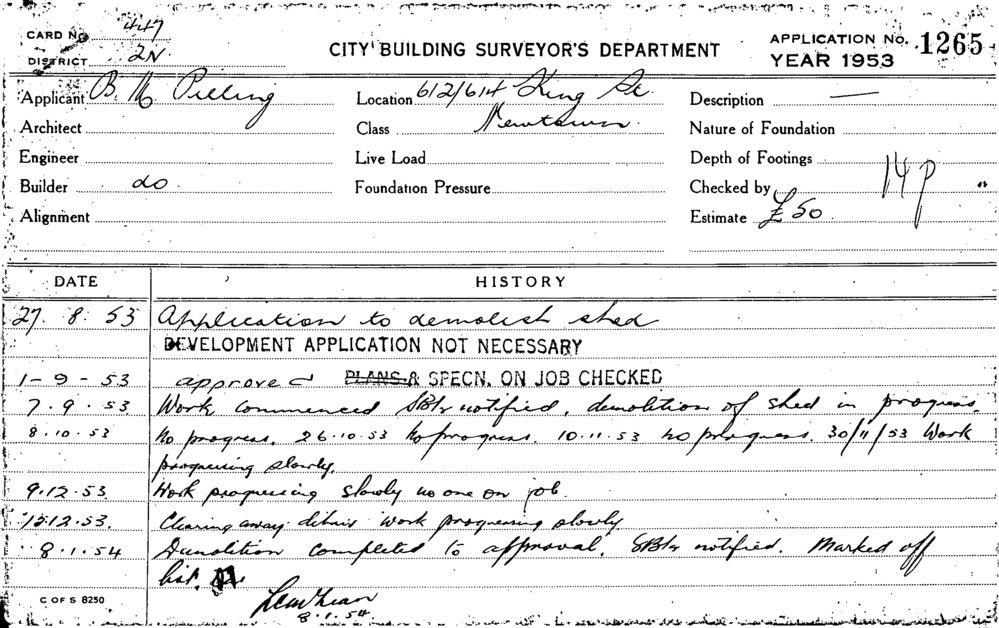 CARD No 447
DISTRICT 2N
CITY BUILDING SURVEYOR'S DEPARTMENT
APPLICATION No. 1265
YEAR 1953
Applicant B. M. Pilling
Location 612/614 King St.
Description —
Architect
Class Newtown.
Nature of Foundation
Engineer
Live Load
Depth of Footings
Builder do.
Foundation Pressure
Checked by
14 p
Alignment
Estimate £50
DATE HISTORY
27. 8. 53 Application to demolish shed
DEVELOPMENT APPLICATION NOT NECESSARY
1-9-53 approved PLANS & SPECN. ON JOB CHECKED
7.9.53 Work commenced notified, demolition of shed in progress.
8.10.53 No progress. 26.10.53 No progress. 10.11.53 no progress. 30/11/53 Work
progressing slowly.
9.12.53 Work progressing slowly no one on job.
15.12.53. Clearing away debris work progressing slowly
8.1.54 Demolition completed to approval. notified. Marked off
list.
8.1.54
C OF S 8250